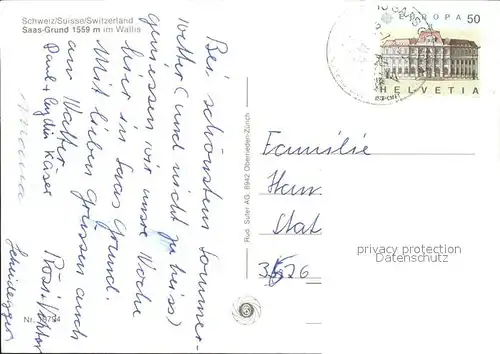 Schweiz/Suisse/Switzerland
Saas-Grund 1559 m im Wallis
Bei schönstem Sommer-
wetter (und nicht zu heiss)
geniessen wir unsre Woche
hier in Saas Grund.
Mit lieben Grüssen auch
an Walter
Paul + Käser
Rösi
Nr.
Rud. Suter AG, 8942 Oberrieden-Zürich
EUROPA 50
HELVETIA
Familie
Han
Stat
privacy protection
Datenschutz